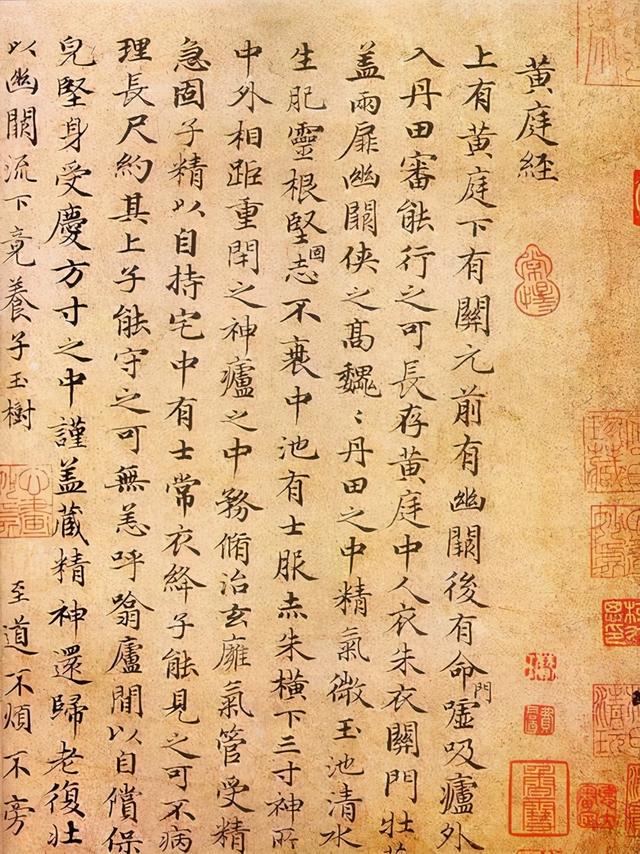 黃庭經
上有黃庭下有關元前有幽闕後有命門嘘吸廬外
入丹田審能行之可長存黃庭中人衣朱衣關門壯
盖兩扉幽闕俠之高巍〻丹田之中精氣微玉池清水
生肥靈根堅志不衰中池有士服赤朱橫下三寸神所
中外相距重閇之神廬之中務脩治玄膺氣管受精
急固子精以自持宅中有士常衣絳子能見之可不病
理長尺約其上子能守之可無恙呼噏廬間以自償保
皃堅身受慶方寸之中謹盖藏精神還歸老復壯
以幽闕流下竟養子玉樹 至道不煩不旁